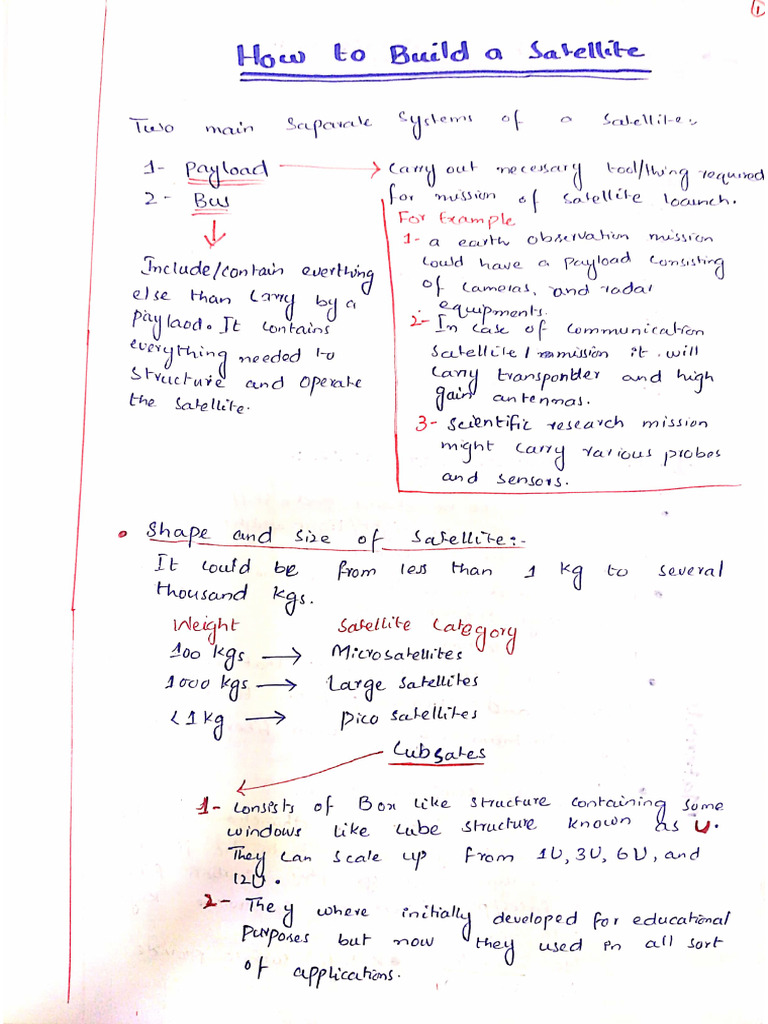 1
How to Build a Satellite
Two main Saparate Systems of a Satellite:
1- Payload → Carry out necessary tool/thing required
for mission of satellite launch.
2- Bus
For Example
1- a earth observation mission
could have a payload consisting
of cameras, and radar
equipments.
2- In case of communication
satellite/ mmission it will
carry transponder and high
gain antennas.
3- Scientific research mission
might carry various probes
and sensors.
Include/contain everthing
else than carry by a
paylaod. It contains
everything needed to
structure and operate
the satellite.
• Shape and size of satellite:-
It could be from less than 1 kg to several
thousand kgs.
Weight Satellite Category
100 kgs → Microsatellites
1000 kgs → Large satellites
<1 kg → pico satellites
Cubsates
1- Consists of Box like structure containing some
windows like cube structure known as U.
They can scale up from 1U, 3U, 6U, and
12U.
2- They where initially developed for educational
purposes but now they used in all sort
of applications.